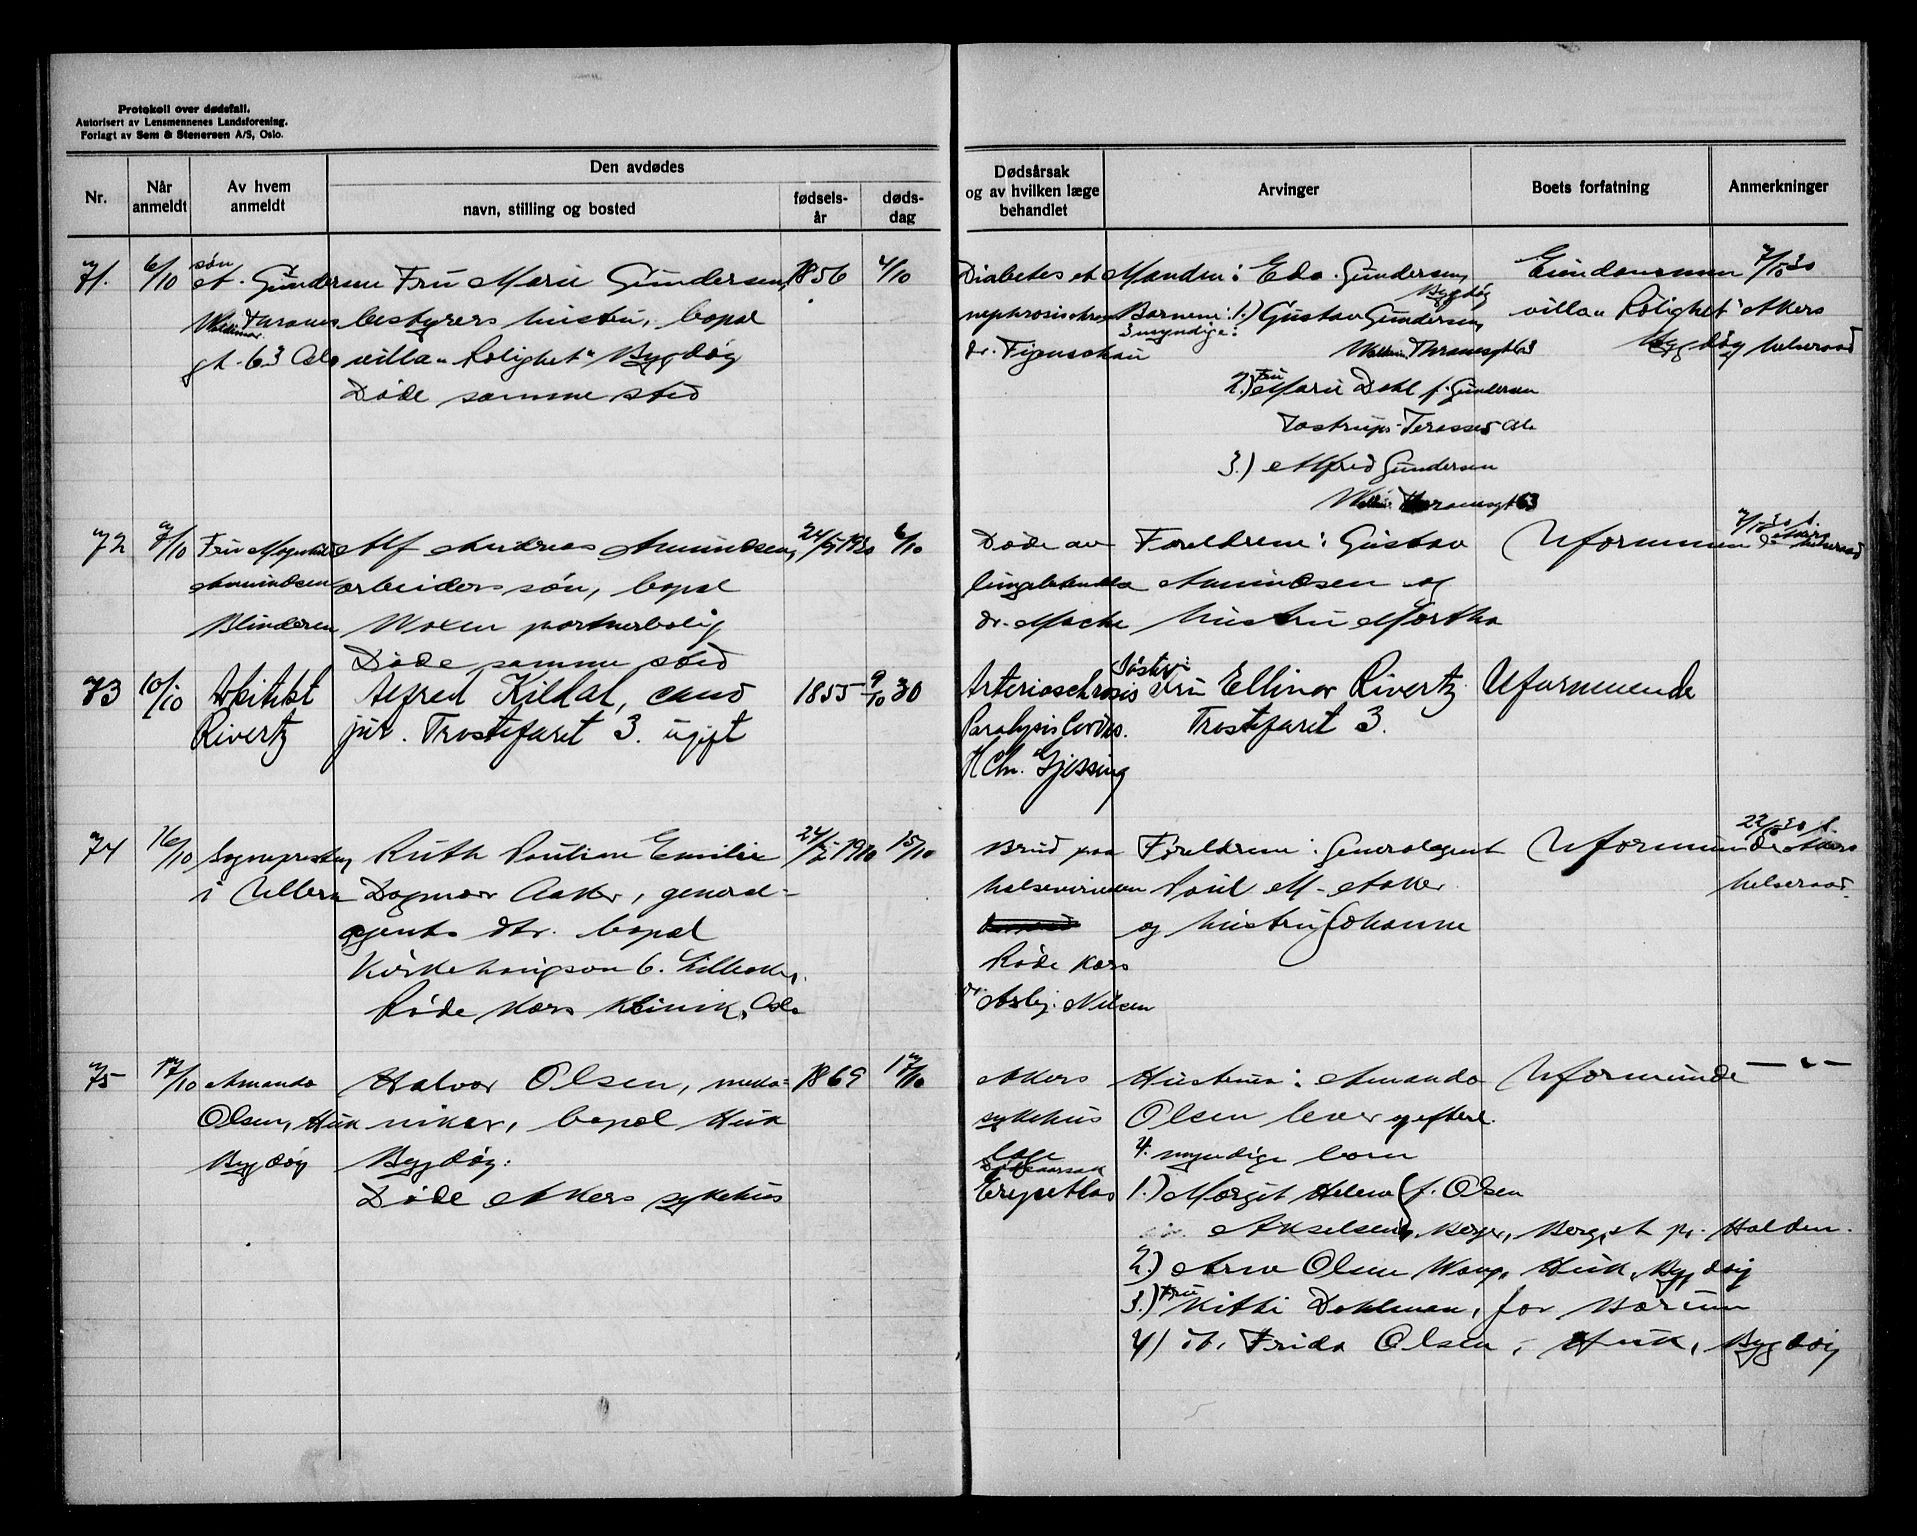 Protokoll over dødsfall.
Autorisert av Lensmennenes Landsforening.
Forlagt av Sem & Stenersen A/S, Oslo.
Nr.
Når anmeldt
Av hvem anmeldt
Den avdødes
navn, stilling og bosted
fødsels-år
døds-dag
Dødsårsak og av hvilken læge behandlet
Arvinger
Boets forfatning
Anmerkninger
71. 6/10 søn A. Gundersen Fru Marie Gundersen, 1856 4/10
bestyrers hustru, bopæl
gt. 63 Oslo villa "Rolighet" Bygdøy
Døde samme sted
Diabetes et
nephrosischron
dr.
Manden: Edv. Gundersen,
Bygdøy
Barnene: 1.) Gustav Gundersen,
3 myndige:
Thranesgt 63
2.) Fru Marie Dahl f. Gundersen
Tostrups Terasse Oslo
3.) Alfred Gundersen
Thranesgt 63
Eiendommen
villa "Rolighet"
Bygdøy
7/10 30
Akers
helseraad
72 7/10 Fru Amundsen Blinderen
Alf Andreas Amundsen,
arbeiders søn, bopæl
portnerbolig
Døde samme sted
6/10
Døde av
dr.
Foreldrene: Gustav
Amundsen og
hustru Martha
Uformuende
Akers helseraad
73 10/10 Arkitekt Rivertz
Alfred Kildal, cand
jur. Trostefaret 3. ugift
1855 9/10 30
Arterioschrosis
Paralysis Cordis.
H Chr. Gjessing
Søster:
Fru Ellinor Rivertz
Trostefaret 3.
Uformuende
74 16/10 Sognepresten i Ullern
Ruth Pauline Emilie
Dagmar Aaker, general-
agents dtr. bopæl
6. Lilleaker,
Røde Kors Klinik, Oslo
15/10
Brud paa
halsvirvelen
Røde Kors
dr. Asbj. Nilsen
Foreldrene: Generalagent
Poul M. Aaker
og hustru Johanne
Uformuende
22/10 30 t.
Akers
helseraad
75 17/10 Amanda
Olsen, Huk
Bygdøy
Halvor Olsen, meka-
niker, bopæl Huk
Bygdøy:
Døde Akers sykehus
1869 17/10
Akers
sykehus
Dødsaarsak
Hustruen: Amanda
Olsen lever og efterl.
4. myndige barn
1.) Margit Helene f. Olsen
Akselsen, Berger, Berg st pr. Halden.
2.) Arne Olsen Wang, Huk, Bygdøy
3.) Fru Kitti Dahlman, Bærum
4) Frida Olsen, Huk, Bygdøy
Uformuende
— " —